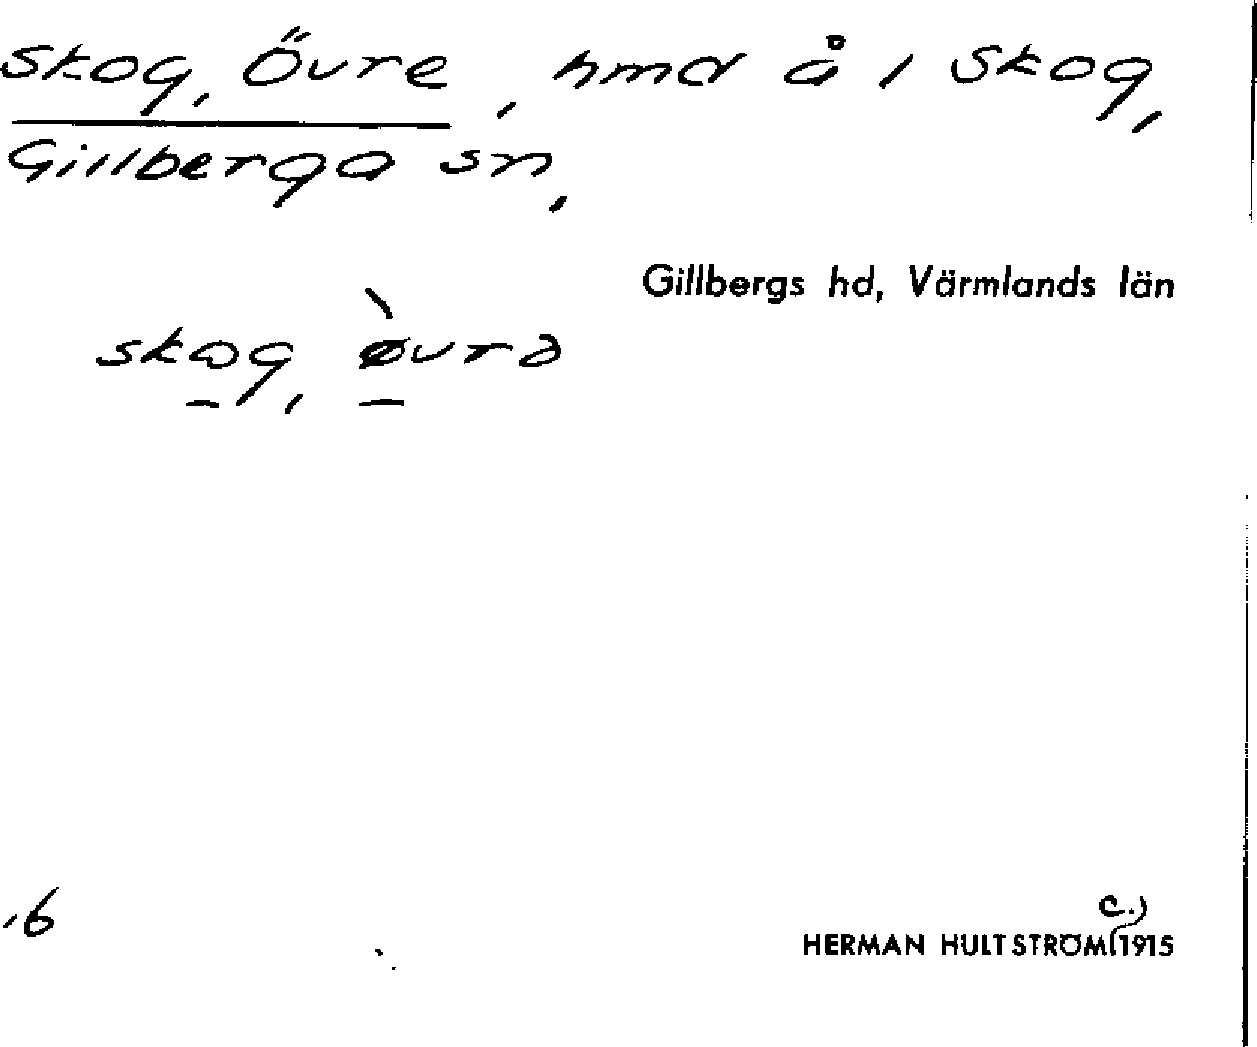 Skog, Övre, hmd å 1 Skog,
Gillberga sn,
Gillbergs hd, Värmlands län
skog, øvrə
6
c.)
HERMAN HULTSTRÖM 1915